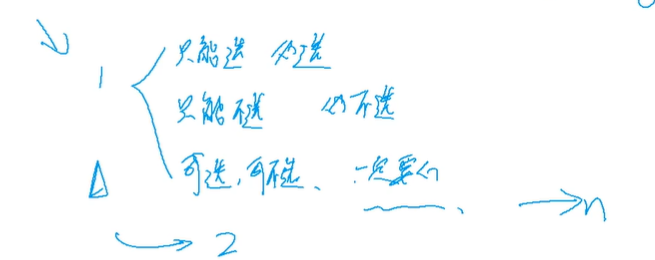 1
只能选 必选
只能不选 必不选
可选,可不选、一定要
n
2